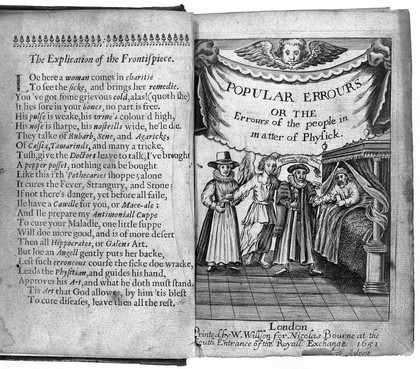 The Explication of the Frontispiece.
LOe here a woman comes in charitie
To see the sicke, and brings her remedie.
You've got some grievous cold, alas! (quoth she)
It lies sore in your bones, no part is free.
His pulse is weake, his vrine's colour'd high,
His nose is sharpe, his nostrills wide, he'le die.
They talke of Rubarb, Sene, and Agaricke,
Of Cassia, Tamarinds, and many a tricke,
Tush, give the Doctors leave to talk, I've brought
A pepper posset, nothing can be bought
Like this i'th 'Pothecaries shoppe; alone
It cures the Fever, Strangury, and Stone:
If not there's danger, yet before all faile,
Ile have a Cawdle for you, or Mace-ale:
And Ile prepare my Antimoniall Cuppe
To cure your Maladie, one little suppe
Will doe more good, and is of more desert
Then all Hippocrates, or Galens Art.
But loe an Angell gently puts her backe,
Lest such erroneous course the sicke doe wracke,
Leads the Physitian, and guides his hand,
Approves his Art, and what he doth must stand.
Tis Art that God allowes, by him 'tis blest
To cure diseases, leave then all the rest.
POPULAR ERROURS
OR THE
Errours of the people in
matter of Physick.
London
Printed by W. Willson for Nicolas Bourne at the
South Entrance of the Royall Exchange 1651